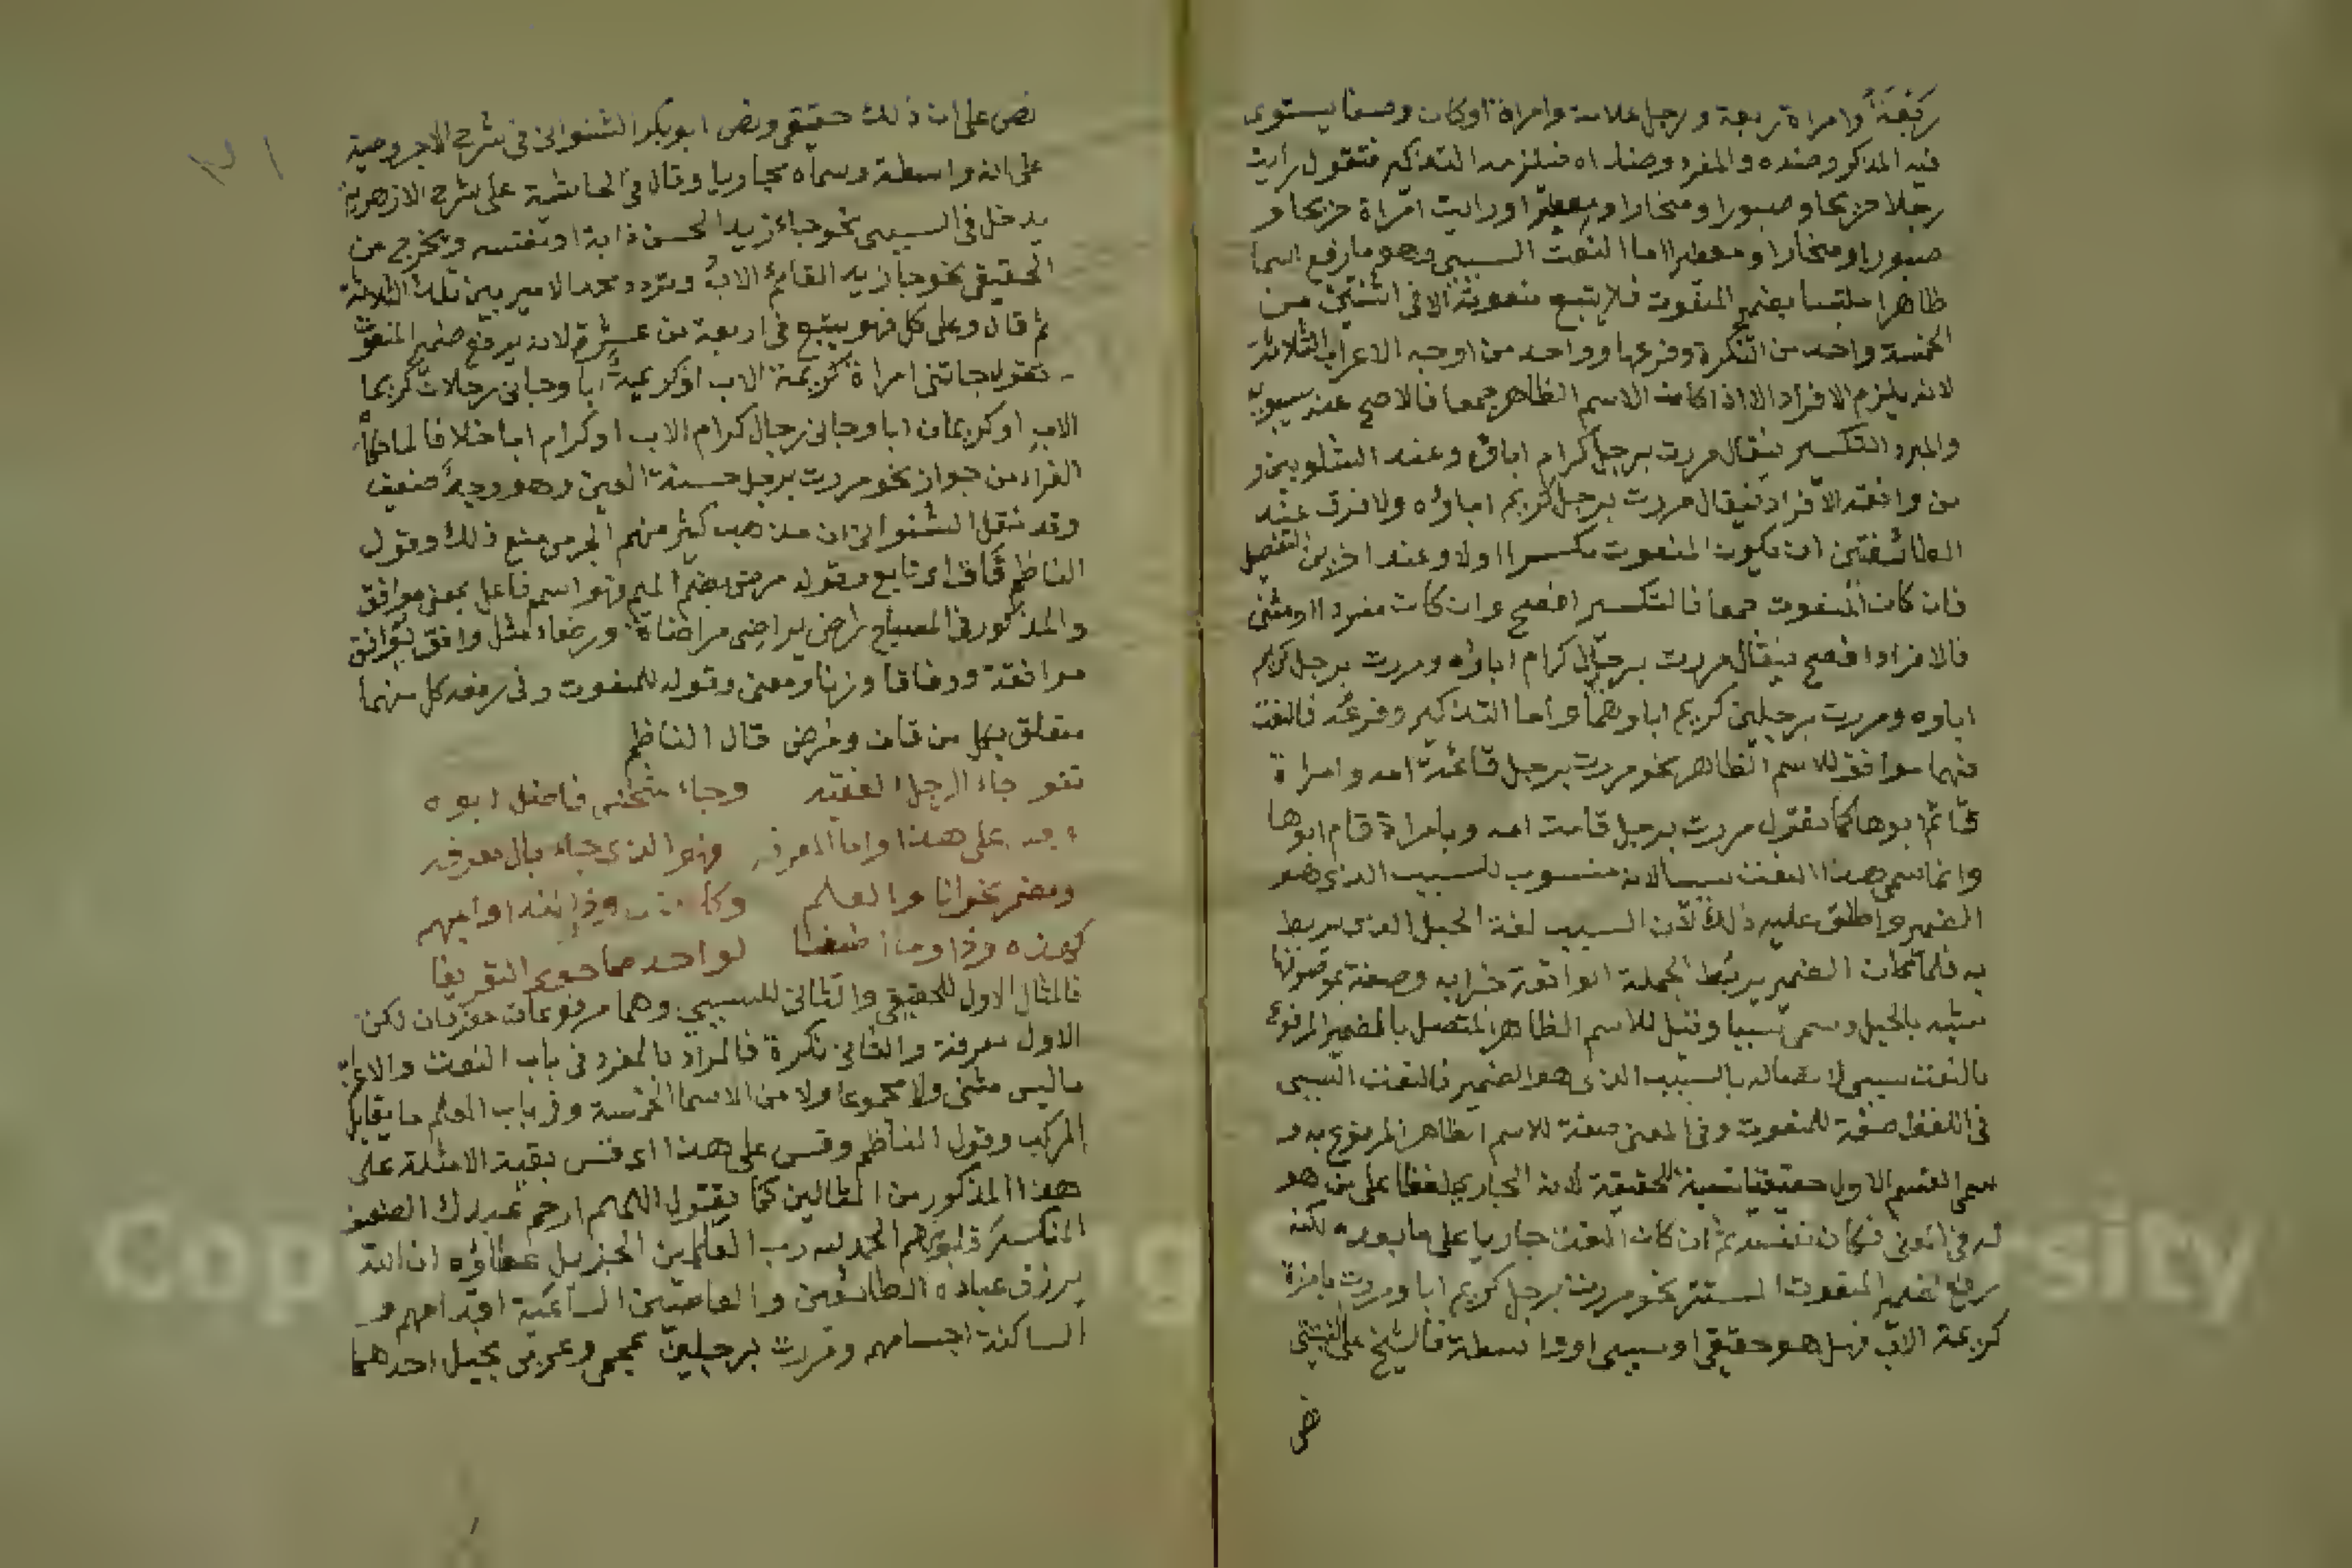 ربعة وامراة ربعة ورجل علامة وامراة اوكان وصفا يستوى
فيه المذكر وضده والمفرد وضداه فيلزمه التذكير فتقول رايت
رجلا جريحا وصبورا ومنحارا ومعطرا ورايت امراة جريحا و
صبورا ومنحارا ومعطرا اما النعت السببى وهو ما رفع اسما
ظاهرا ملتبسا بضمير المنعوت فلا يتبع منعوته الا فى اثنين من
الخمسة واحد من التنكرة وفرعها وواحد من اوجه الاعراب الثلاثة
لانه يلزم الافراد الا اذا كان الاسم الظاهر جمعا فالاصح عند سيبويه
والمبرد التكسير فيقال مررت برجل كرام اباؤه وعند الشلوبين و
من وافقه الافراد فيقال مررت برجل كريم اباؤه ولا فرق عند
الطائفتين ان يكون المنعوت مكسرا اولا وعند اخرين التفصيل
فان كان المنعوت جمعا فالتكسير افصح وان كان مفردا او مثنى
فالافراد افصح فيقال مررت برجال كرام اباؤه ومررت برجل كريم
اباوه ومررت برجلين كريم اباوهما واما التذكير وفرعه فالنعت
فيهما موافق للاسم الظاهر نحو مررت برجل قائمة امه وامراة
قائم ابوها كما تقول مررت برجل قامت امه وبامراة قام ابوها
وانما سمى هذا النعت سببيا لانه منسوب للسبب الذى هو
الضمير واطلق عليه ذلك لان السبب لغة الحبل الذى يربط
به فلما كان الضمير يربط الجملة الواقعة خبرا به وصفة بموصوفها
شبه بالحبل وسمى سببيا وقيل للاسم الظاهر المتصل بالضمير المرفوع
بالنعت سببى لاتصاله بالسبب الذى هو الضمير فالنعت السببى
فى اللفظ صفة للمنعوت وفى المعنى صفة للاسم الظاهر المرفوع به و
سمى القسم الاول حقيقيا نسبة للحقيقة لانه الجارى لفظا على من هو
له فى المعنى فكان نفسه ثم ان كان النعت جاريا على ما بعده لكنه
رفع ضمير المنعوت المستتر نحو مررت برجل كريم ابا ومررت بامراة
كريمة الاب فهل هو حقيقى او سببى او واسطة فالشيخ على
نص
نص على ان ذلك حقيقى ونص ابو بكر الشنوانى فى شرح الاجرومية
على انه واسطة وسماه مجازيا وقال فى الحاشية على شرح الازهرية
يدخل فى السببى نحو جاء زيد الحسن ذاته او نفسه ويخرج من
الحقيقى نحو جا زيد القائم الاب وتردد محمد الامير بين تلك الثلاثة
ثم قال وعلى كل فهو يتبع فى اربعة من عشرة لانه يرفع ضمير المنعوت
تقول جاتنى امراة كريمة الاب او كريمة ابا وجانى رجلان كريما
الاب او كريمان ابا وجانى رجال كرام الاب او كرام ابا خلافا لما
الفراء من جواز نحو مررت برجل حسنة العين وهو وجه ضعيف
وقد نقل الشنوانى ان مذهب كثير منهم الجرمى منع ذلك وقول
الناظم قاف اى تابع وقوله مرضى بضم الميم فهو اسم فاعل بمعنى موافق
والمذكور فى المصباح راضى يراضى مراضاة ورضاء مثل وافق يوافق
موافقة ووفاقا وزنا ومعنى وقوله للمنعوت وفى رفعه كل منهما
متعلق بكل من قاف ومرض قال الناظم
نحو جاء الرجل الفقيه وجاء شخص فاضل ابوه
على هذا واما المعرفة فهو الذى جاء بال معرفه
ومضمر نحو انا والعلم وكا وذا ابهم
كهذه وذا وما اضيفا لواحد مما حوى التعريفا
فالمثال الاول للحقيقى والثانى للسببى وهما مرفوعان مفردان لكن
الاول معرفة والثانى نكرة فالمراد بالمفرد فى باب النعت والاعراب
ما ليس مثنى ولا مجموعا ولا من الاسما الخمسة وفى باب العلم ما يقابل
المركب وقول الناظم وقس على هذا اى قس بقية الامثلة على
هذا المذكور من المثالين كما تقول اللهم ارحم عبدك الضعيف
المنكسر قلبه الحمد لله رب العالمين الجزيل عطاؤه ان الله
يرزق عباده الطائعين والعاصين الساعية اقدامهم و
الساكنة اجسامهم ومررت برجلين عجمى وعربى بخيل احدهما